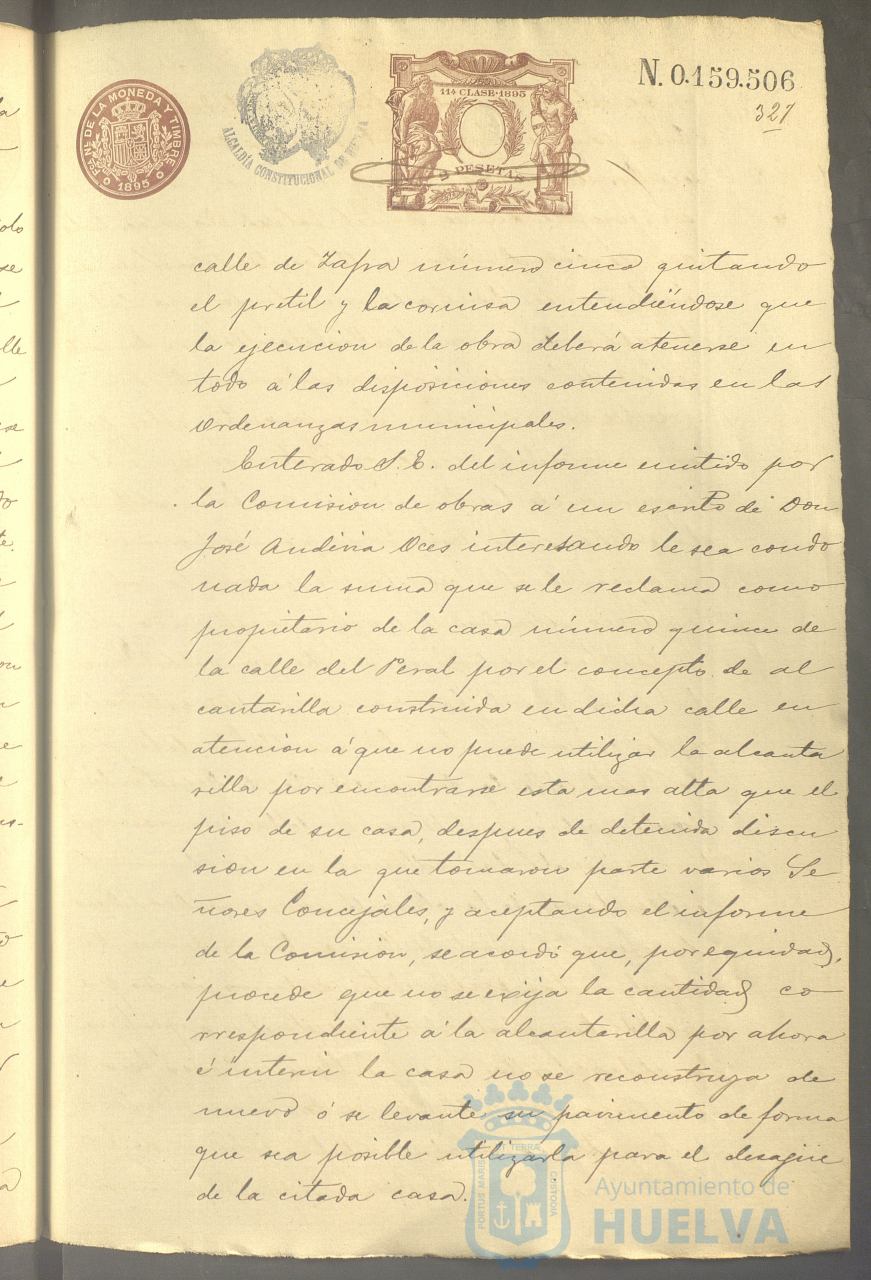 FCA. NL. DE LA MONEDA Y TIMBRE
1895
ALCALDÍA CONSTITUCIONAL DE HUELVA
11ª CLASE·1895
2 PESETAS
N. 0.159.506
327
calle de Zafra número cinco quitando
el pretil y la cornisa entendiéndose que
la ejecucion de la obra deberá atenerse en
todo á las disposiciones contenidas en las
Ordenanzas municipales.
Enterado S. E. del informe emitido por
la Comision de obras á un escrito de Don
José Andivia Oces interesando le sea condo
nada la suma que se le reclama como
propietario de la casa número quince de
la calle del Peral por el concepto de al
cantarilla construida en dicha calle en
atencion á que no puede utilizar la alcanta
rilla por encontrarse esta mas alta que el
piso de su casa, despues de detenida discu
sion en la que tomaron parte varios Se
ñores Concejales, y aceptando el informe
de la Comision, se acordó que, por equidad,
procede que no se exija la cantidad co
rrespondiente á la alcantarilla por ahora
é ínterin la casa no se reconstruya de
nuevo ó se levante su pavimento de forma
que sea posible utilizarla para el desagüe
de la citada casa.
PORTUS MARIS
ET TERRA
CUSTODIA
Ayuntamiento de
HUELVA